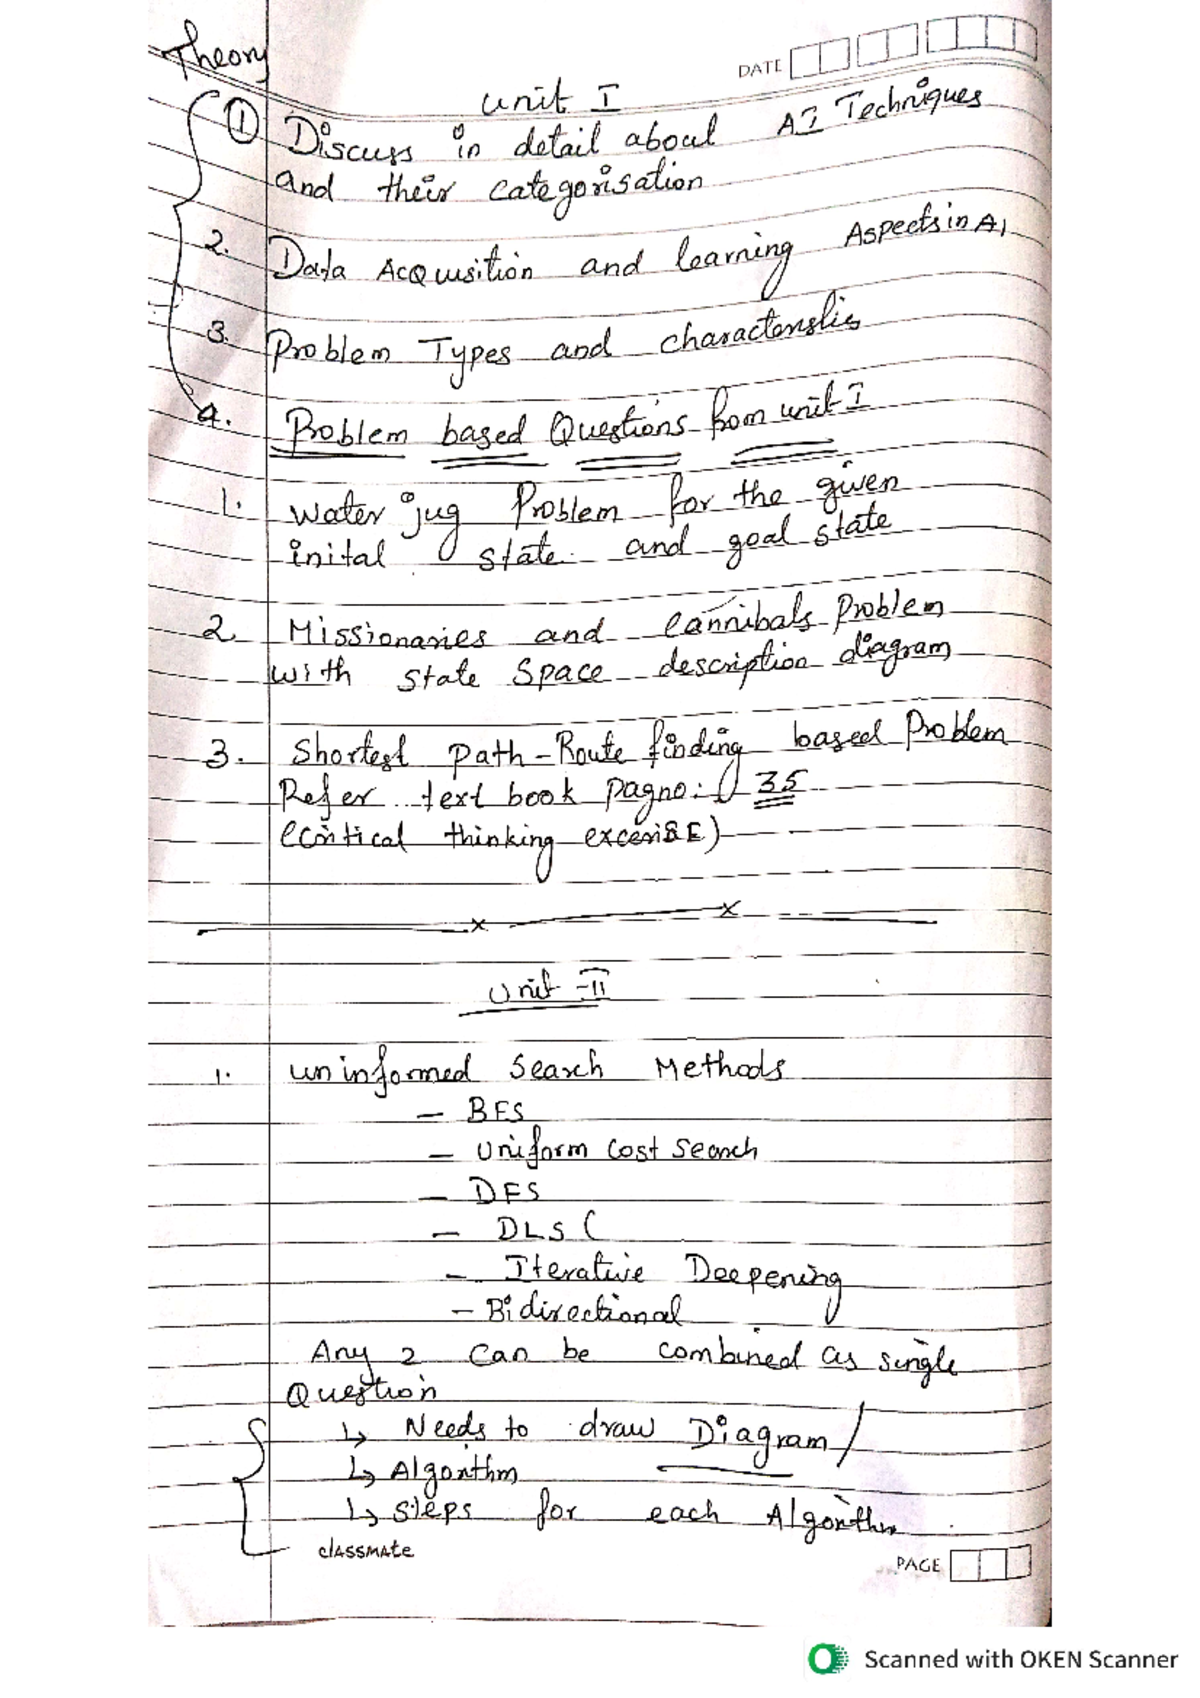 Theory
DATE
Unit I
① Discuss in detail about AI Techniques
and their categorisation
2. Data Acqusition and learning Aspects in AI
3. Problem Types and characteristic
4. Problem based Questions from unit I
1. Water jug Problem for the given
inital state and goal state
2 Missionaries and Cannibals Problem
with state space description diagram
3. Shortest path - Route finding based Problem
Refer text book pagno: 35
(Critical thinking excerise)
Unit - II
1. uninformed Search Methods
- BFS
- Uniform Cost Search
- DFS
- DLS (
- Iterative Deepening
- Bidirectional
Any 2 can be combined as single
Question
↳ Needs to draw Diagram /
↳ Algorithm
↳ Steps for each Algorithm
classmate
PAGE
Scanned with OKEN Scanner